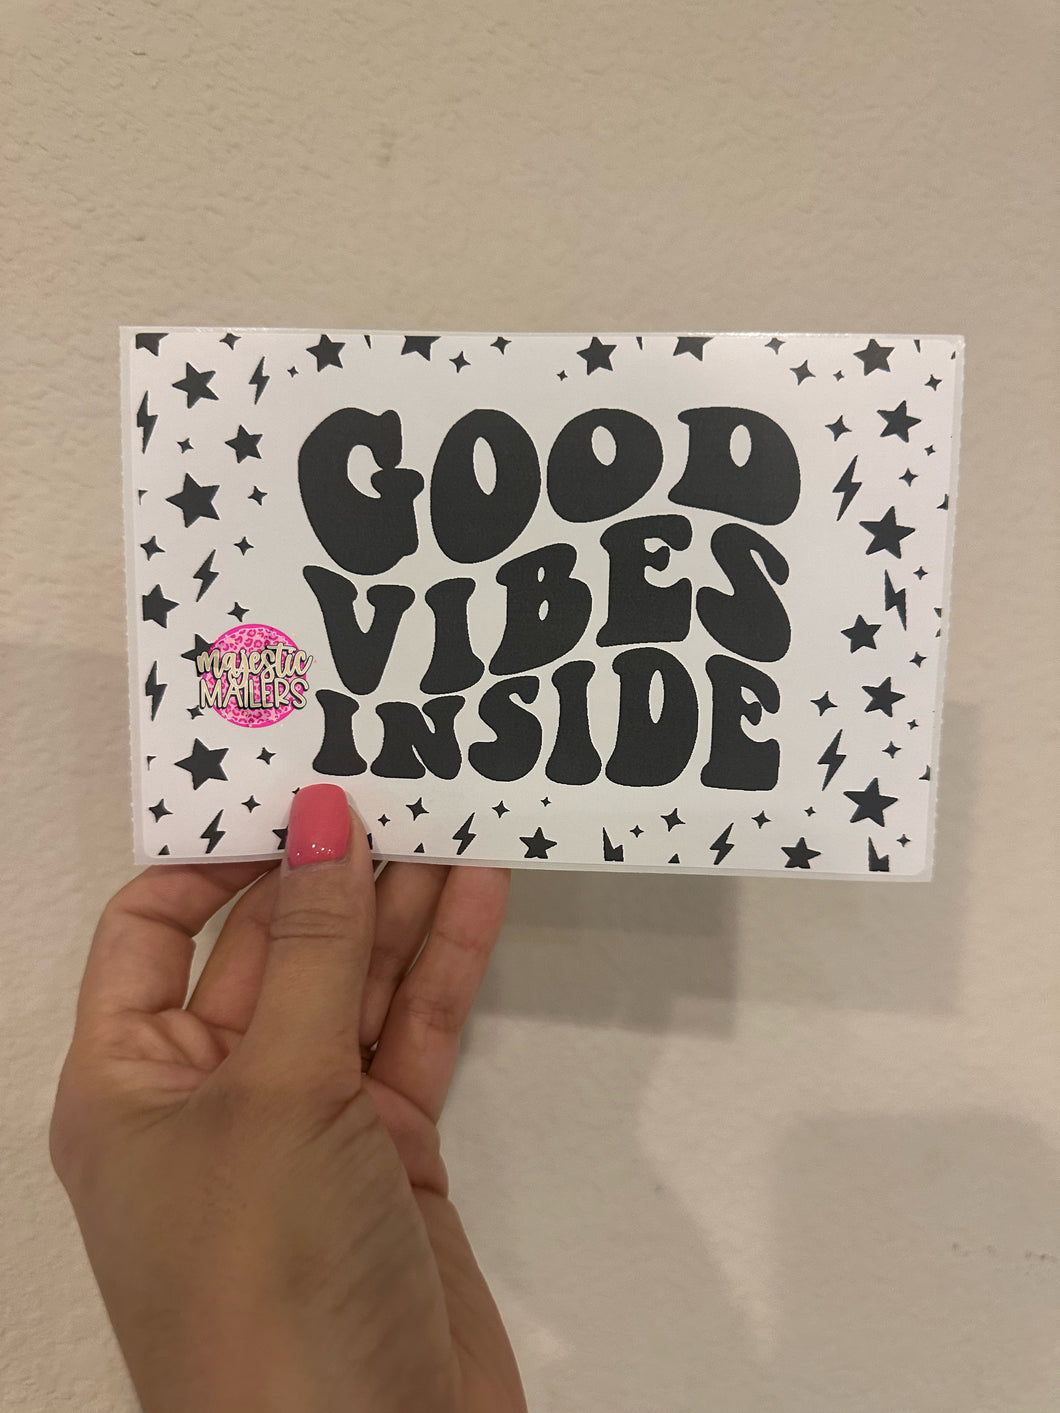 GOOD
VIBES
INSIDE
majestic
MAILERS